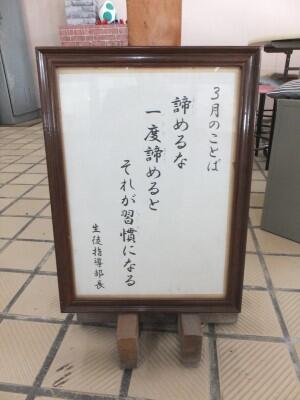 3月のことば
諦めるな
一度諦めると
それが習慣になる
生徒指導部長